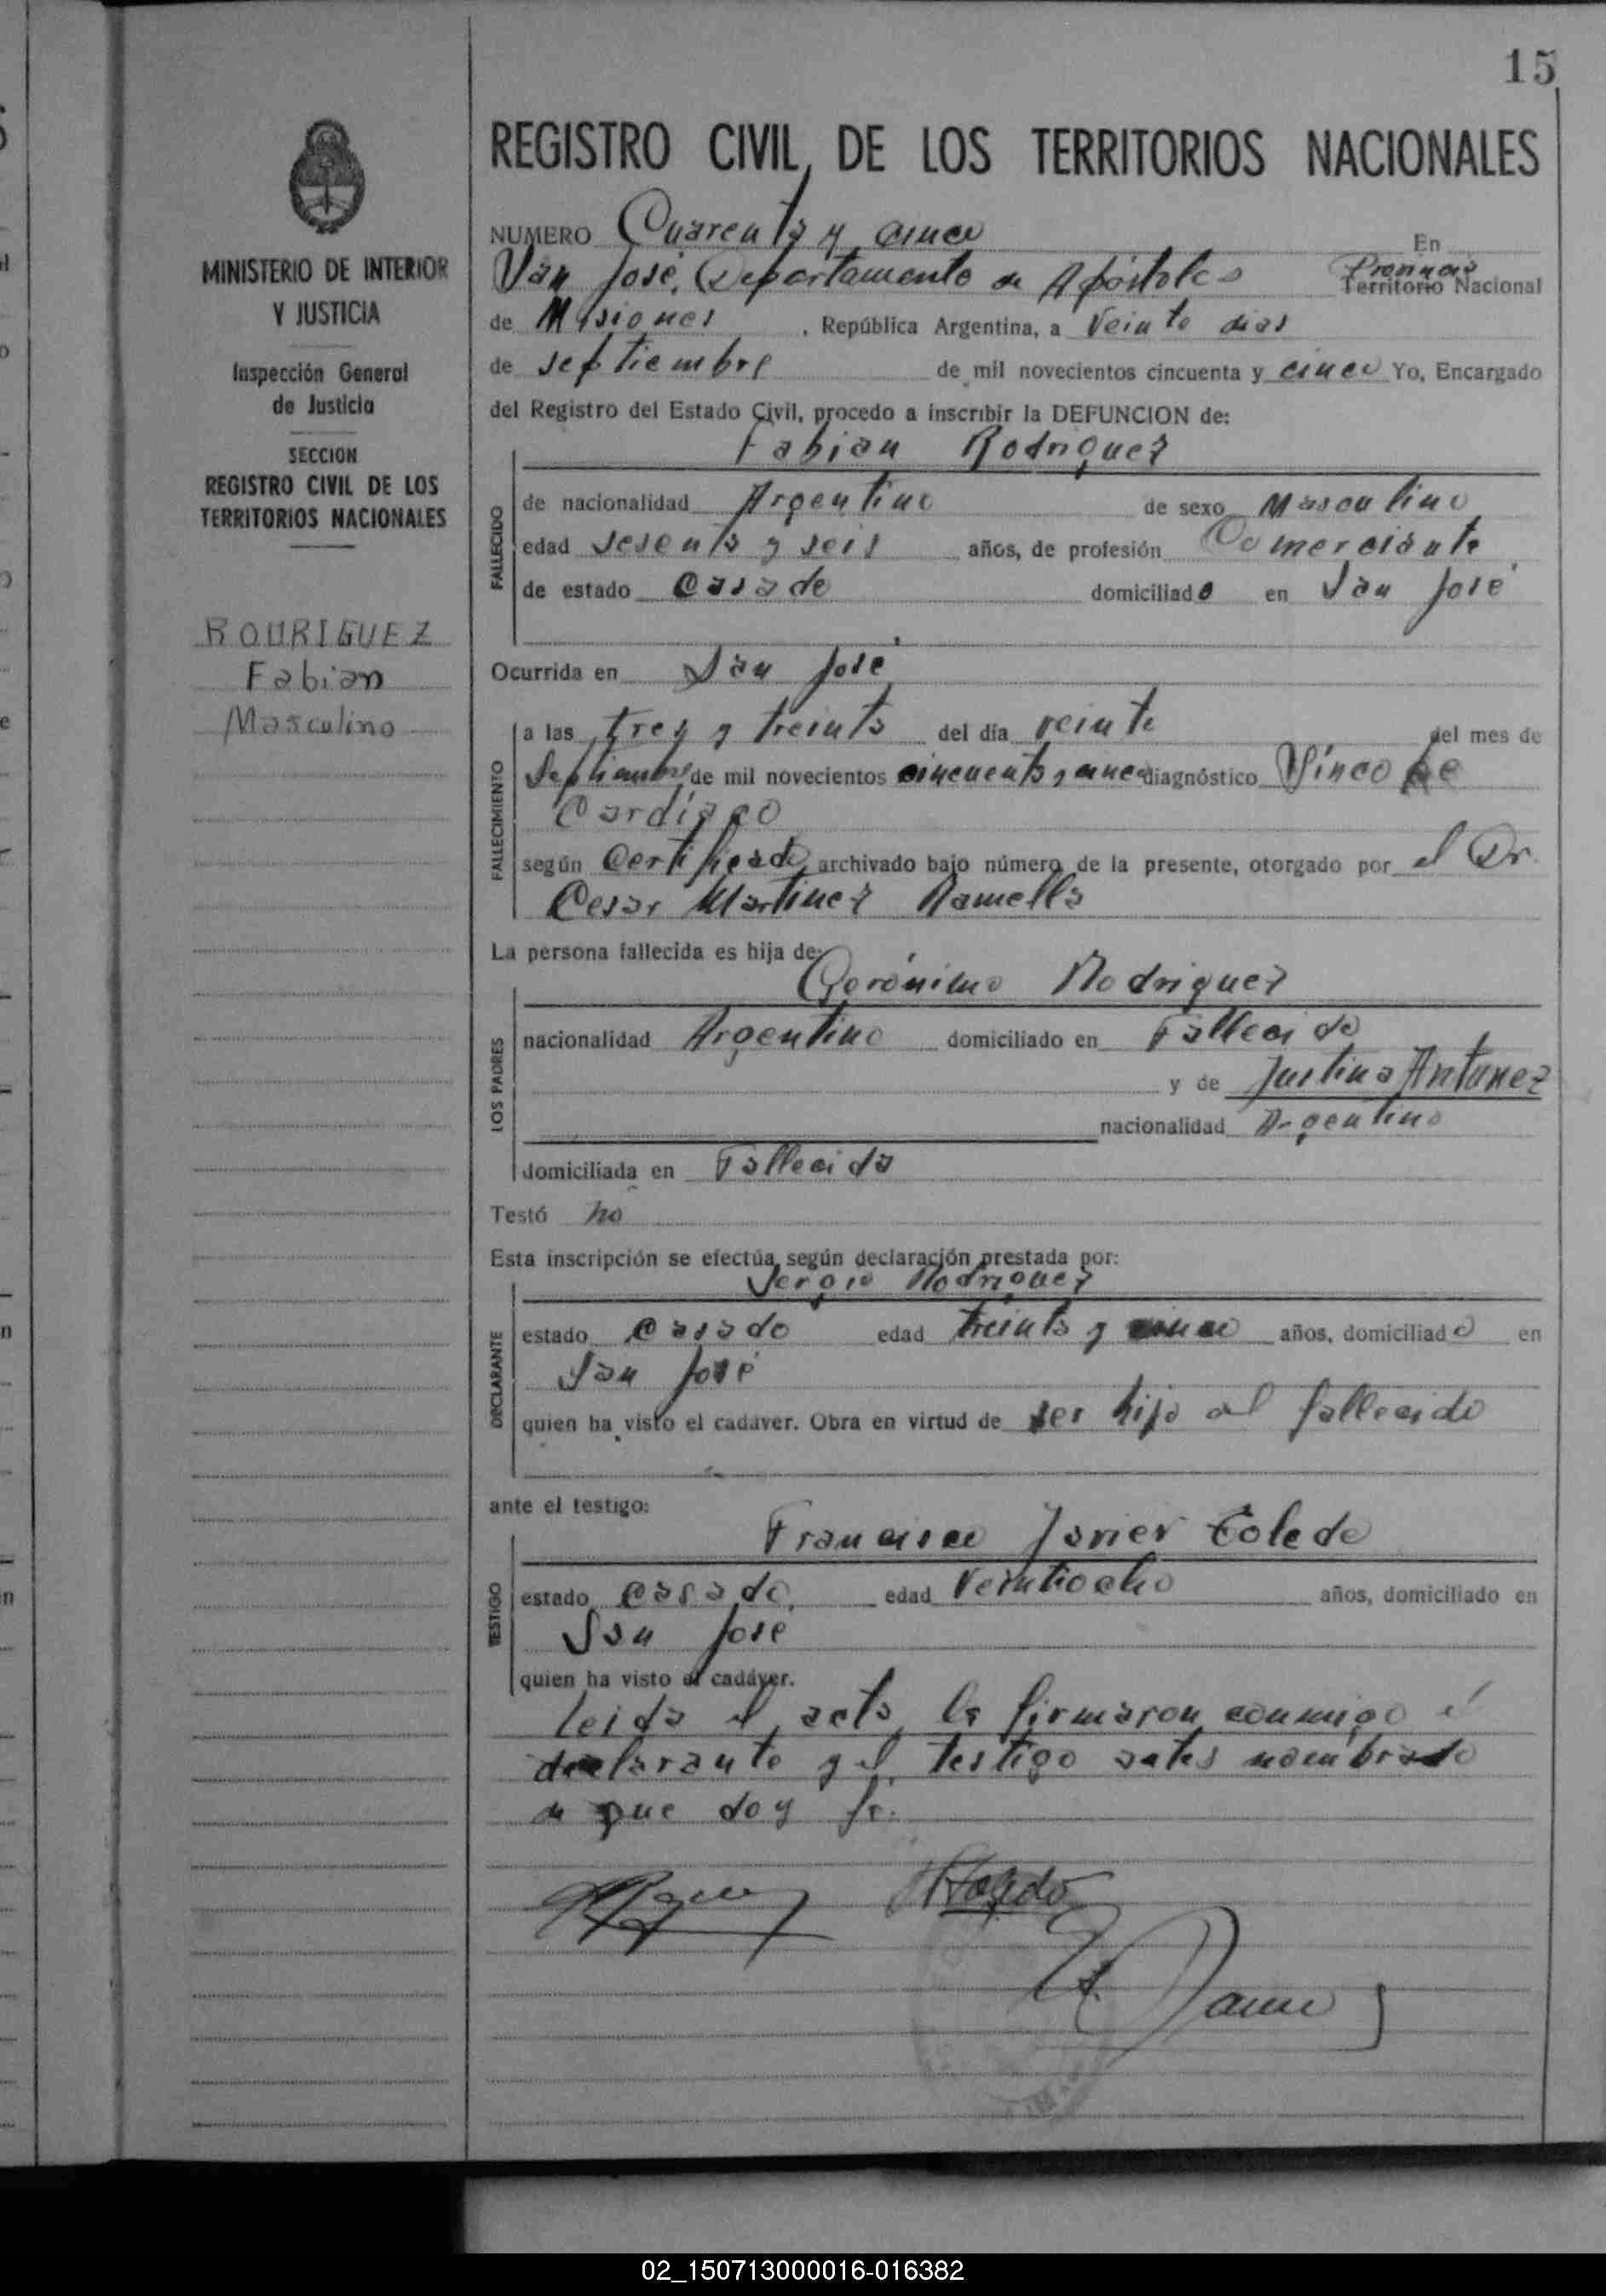 15
REGISTRO CIVIL DE LOS TERRITORIOS NACIONALES
MINISTERIO DE INTERIOR
Y JUSTICIA
Inspección General
de Justicia
SECCION
REGISTRO CIVIL DE LOS
TERRITORIOS NACIONALES
RODRIGUEZ
Fabian
Masculino
NUMERO Cuarenta y cinco En
San José, Departamento de Apóstoles Provincia Territorio Nacional
de Misiones, República Argentina, a veinte dias
de septiembre de mil novecientos cincuenta y cinco Yo, Encargado
del Registro del Estado Civil, procedo a inscribir la DEFUNCION de:
Fabian Rodriguez
FALLECIDO
de nacionalidad Argentino de sexo Masculino
edad sesenta y seis años, de profesión Comerciante
de estado Casado domiciliado en San José
Ocurrida en San José
FALLECIMIENTO
a las tres y treinta del día veinte del mes de
Septiembre de mil novecientos cincuenta y cinco diagnóstico Síncope
Cardíaco
según Certificado archivado bajo número de la presente, otorgado por el Dr.
Cesar Martinez Ramella
La persona fallecida es hija de:
Gerónimo Rodriguez
LOS PADRES
nacionalidad Argentino domiciliado en Fallecido
y de Justina Antunez
nacionalidad Argentina
domiciliada en Fallecida
Testó no
Esta inscripción se efectúa según declaración prestada por:
Sergio Rodriguez
DECLARANTE
estado Casado edad treinta y cinco años, domiciliado en
San José
quien ha visto el cadáver. Obra en virtud de ser hijo del fallecido
ante el testigo:
Francisco Javier Toledo
TESTIGO
estado casado, edad Veintiocho años, domiciliado en
San José
quien ha visto el cadáver.
leida el acta la firmaron conmigo el
declarante y el testigo antes nombrado
de que doy fe.
Toledo
02_150713000016-016382